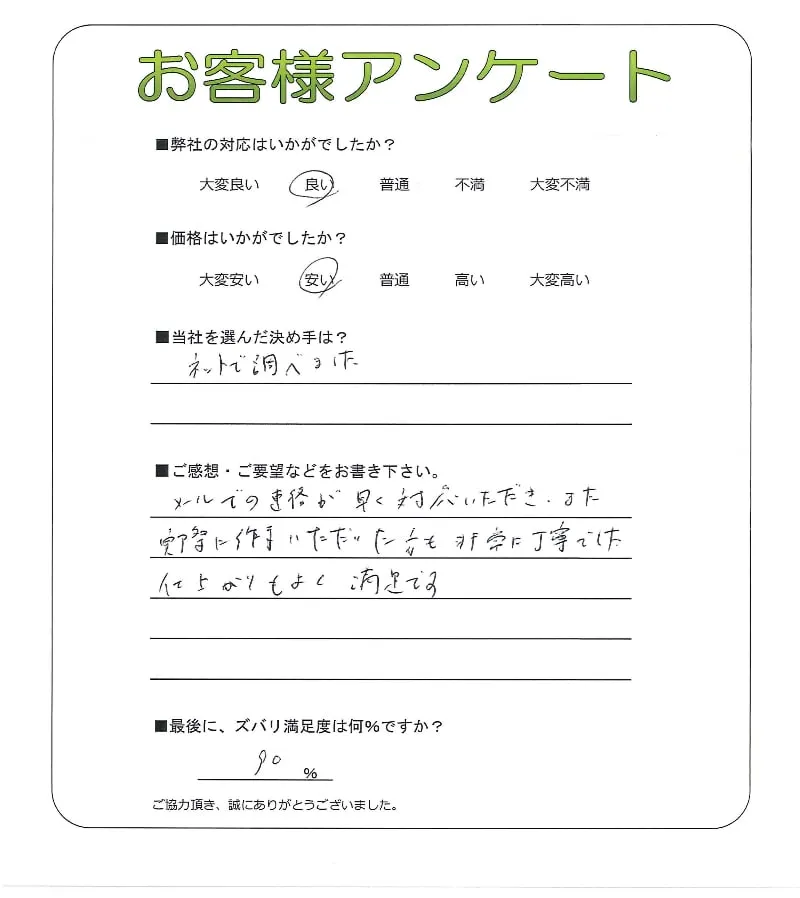 お客様アンケート
■弊社の対応はいかがでしたか？
大変良い 良い 普通 不満 大変不満
■価格はいかがでしたか？
大変安い 安い 普通 高い 大変高い
■当社を選んだ決め手は？
ネットで調べました
■ご感想・ご要望などをお書き下さい。
メールでの連絡が早く対応いただき、また
実際に作業いただいた方も非常に丁寧でした
仕上がりもよく満足です
■最後に、ズバリ満足度は何%ですか？
90 %
ご協力頂き、誠にありがとうございました。